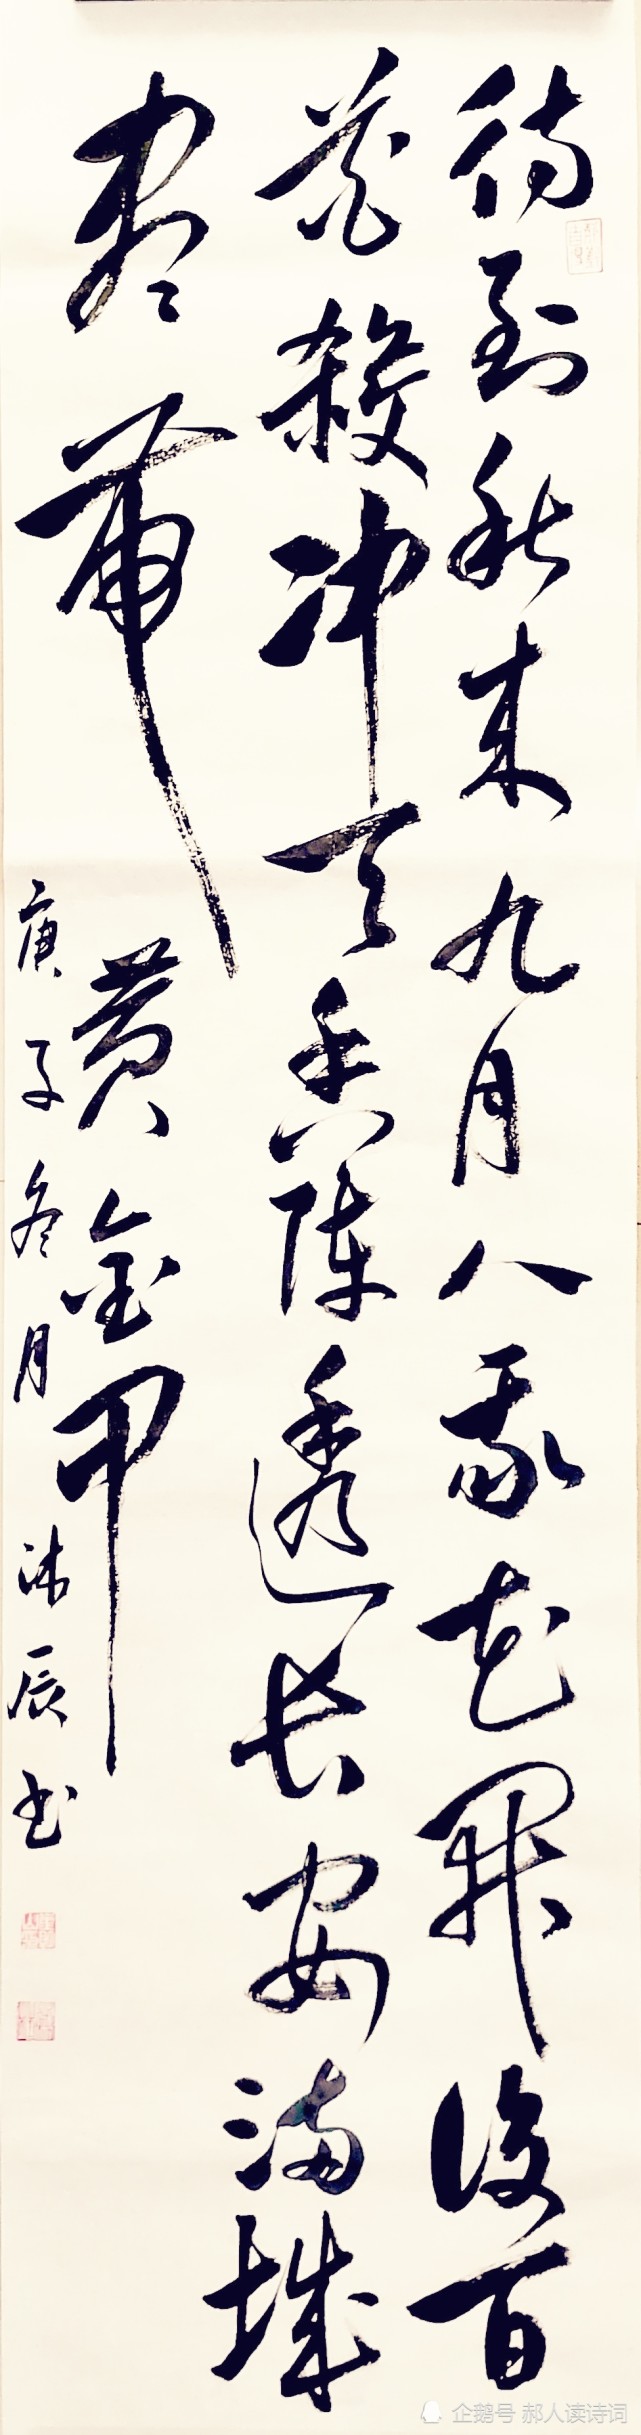 待到秋来九月八我花開後百
花殺冲天香陣透長安滿城
盡帶黄金甲
庚子冬月沐辰书
企鹅号 郝人读诗词